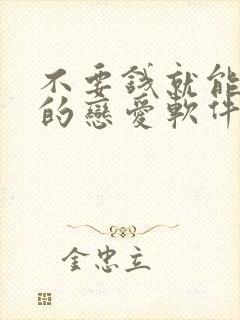 不要錢就能
的戀愛軟件
金忠立